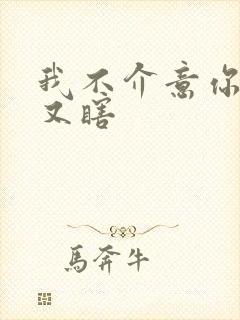 我不介意你
又瞎
馬奔牛